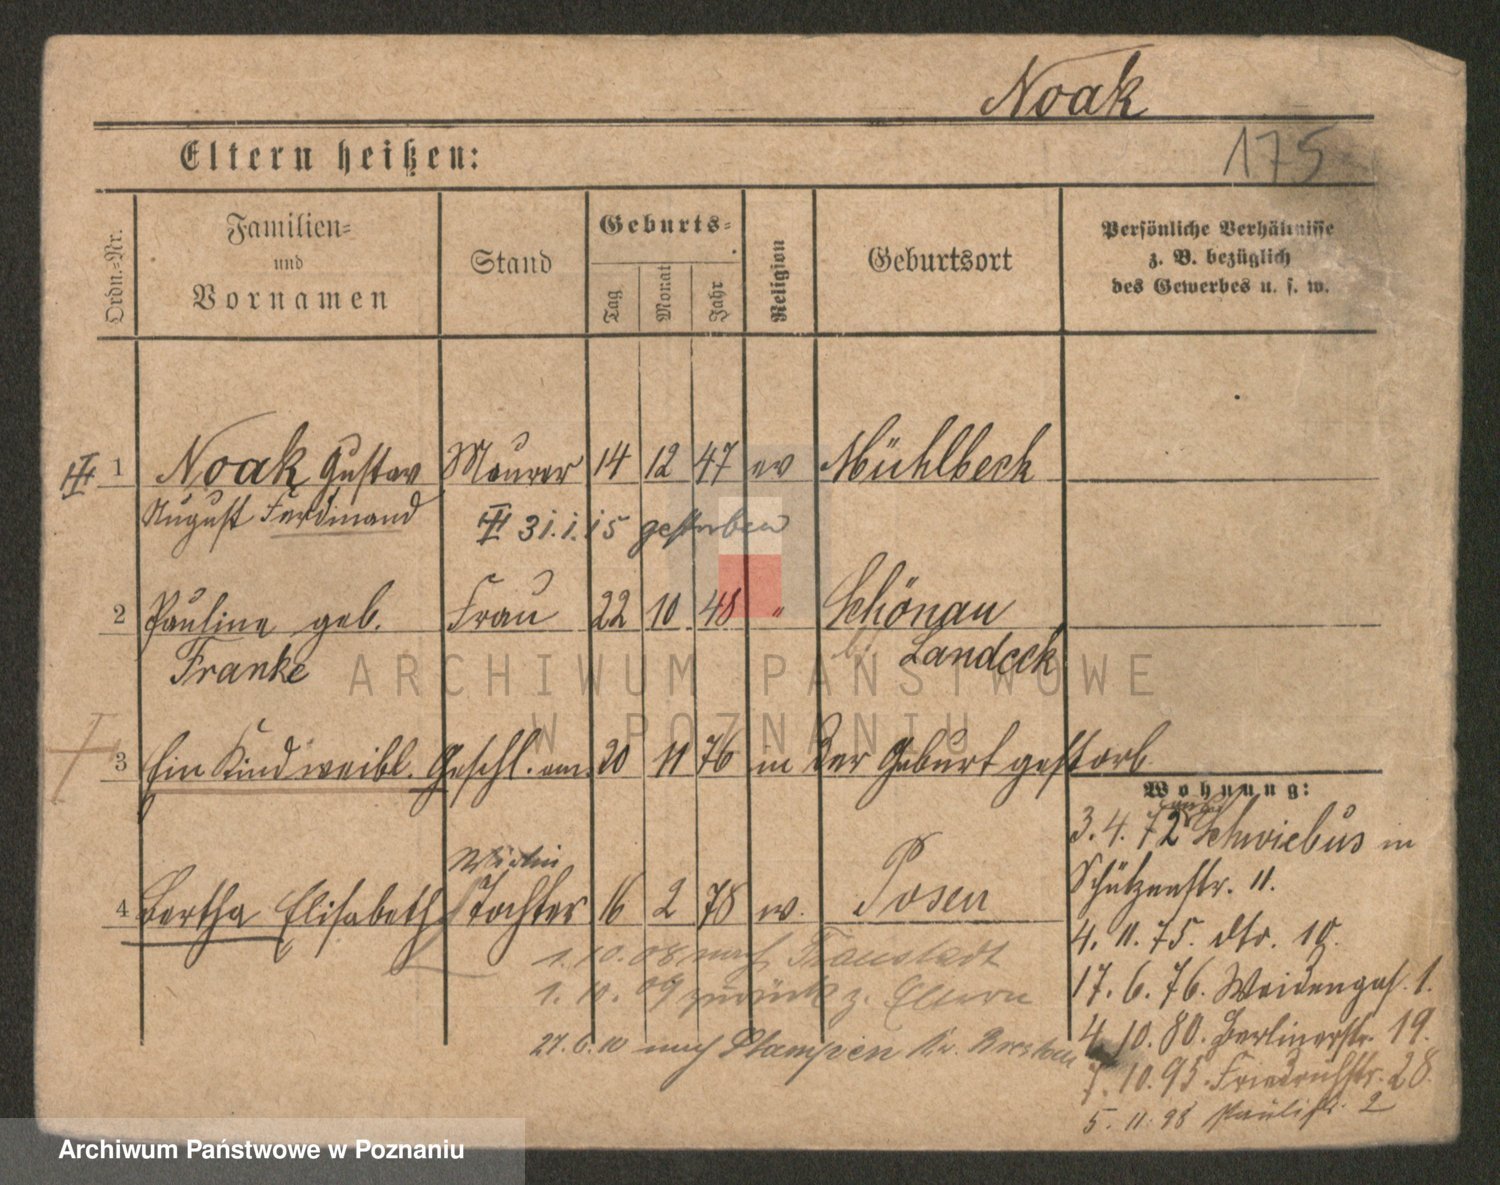 Noak
175
Eltern heißen:
Ordn.=Nr.
Familien=
und
Vornamen
Stand
Geburts=
Tag
Monat
Jahr
Religion
Geburtsort
Persönliche Verhältnisse
z. B. bezüglich
des Gewerbes u. s. w.
1 Noak Gustav Maurer 14 12 47 ev Mühlbeck
August Ferdinand 31.1.15 gestorben
2 Pauline geb. Frau 22 10 48 " Schönau
Franke b. Landeck
3 Ein Kind weibl. Geschl. am 20 11 76 in der Geburt gestorb.
Wohnung:
3.4.72 Schwiebus in
Schützenstr. 11.
4 Bertha Elisabeth Tochter 16 2 78 ev. Posen
4.11.75. dto. 10.
1.10.08 nach Fraustadt
17.6.76. Weidengas. 1.
1.10.09 zurück z. Eltern
4.10.80. Berlinerstr. 19.
27.6.10 nach Stampen Kr.
7.10.95. Friedrichstr. 28.
5.11.98 Paulistr. 2
ARCHIWUM PAŃSTWOWE
W POZNANIU
Archiwum Państwowe w Poznaniu